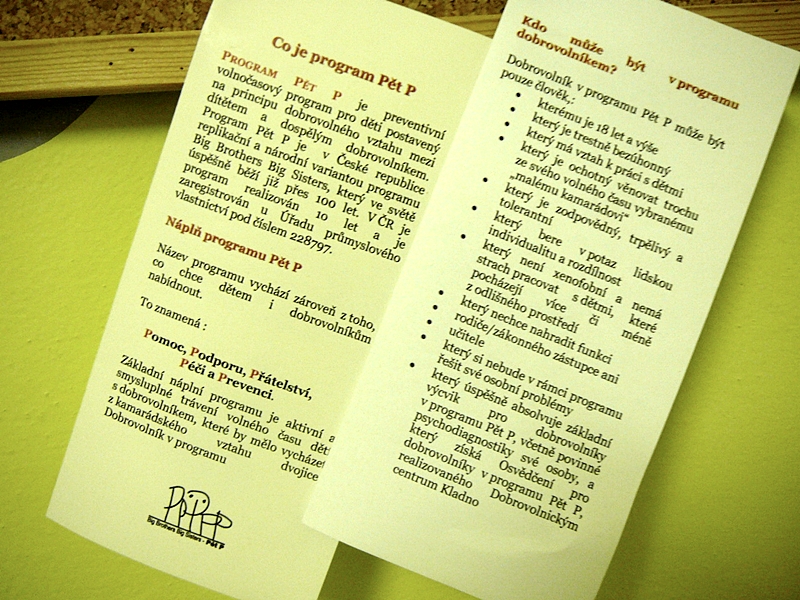 Co je program Pět P
PROGRAM PĚT P je preventivní
volnočasový program pro děti postavený
na principu dobrovolného vztahu mezi
dítětem a dospělým dobrovolníkem.
Program Pět P je v České republice
replikační a národní variantou programu
Big Brothers Big Sisters, který ve světě
úspěšně běží již přes 100 let. V ČR je
program realizován 10 let a je
zaregistrován u Úřadu průmyslového
vlastnictví pod číslem 228797.
Náplň programu Pět P
Název programu vychází zároveň z toho,
co chce dětem i dobrovolníkům
nabídnout.
To znamená :
Pomoc, Podporu, Přátelství,
Péči a Prevenci.
Základní náplní programu je aktivní a
smysluplné trávení volného času dětí
s dobrovolníkem, které by mělo vycházet
z kamarádského vztahu dvojice
Dobrovolník v programu
Big Brothers Big Sisters - Pět P
Kdo může být v programu
dobrovolníkem?
Dobrovolník v programu Pět P může být
pouze člověk,:
• kterému je 18 let a výše
• který je trestně bezúhonný
• který má vztah k práci s dětmi
• který je ochotný věnovat trochu
ze svého volného času vybranému
„malému kamarádovi“
• který je zodpovědný, trpělivý a
tolerantní
• který bere v potaz lidskou
individualitu a rozdílnost
• který není xenofobní a nemá
strach pracovat s dětmi, které
pocházejí více či méně
z odlišného prostředí
• který nechce nahradit funkci
rodiče/zákonného zástupce ani
učitele
• který si nebude v rámci programu
řešit své osobní problémy
• který úspěšně absolvuje základní
výcvik pro dobrovolníky
v programu Pět P, včetně povinné
psychodiagnostiky své osoby, a
který získá Osvědčení pro
dobrovolníky v programu Pět P,
realizovaného Dobrovolnickým
centrum Kladno